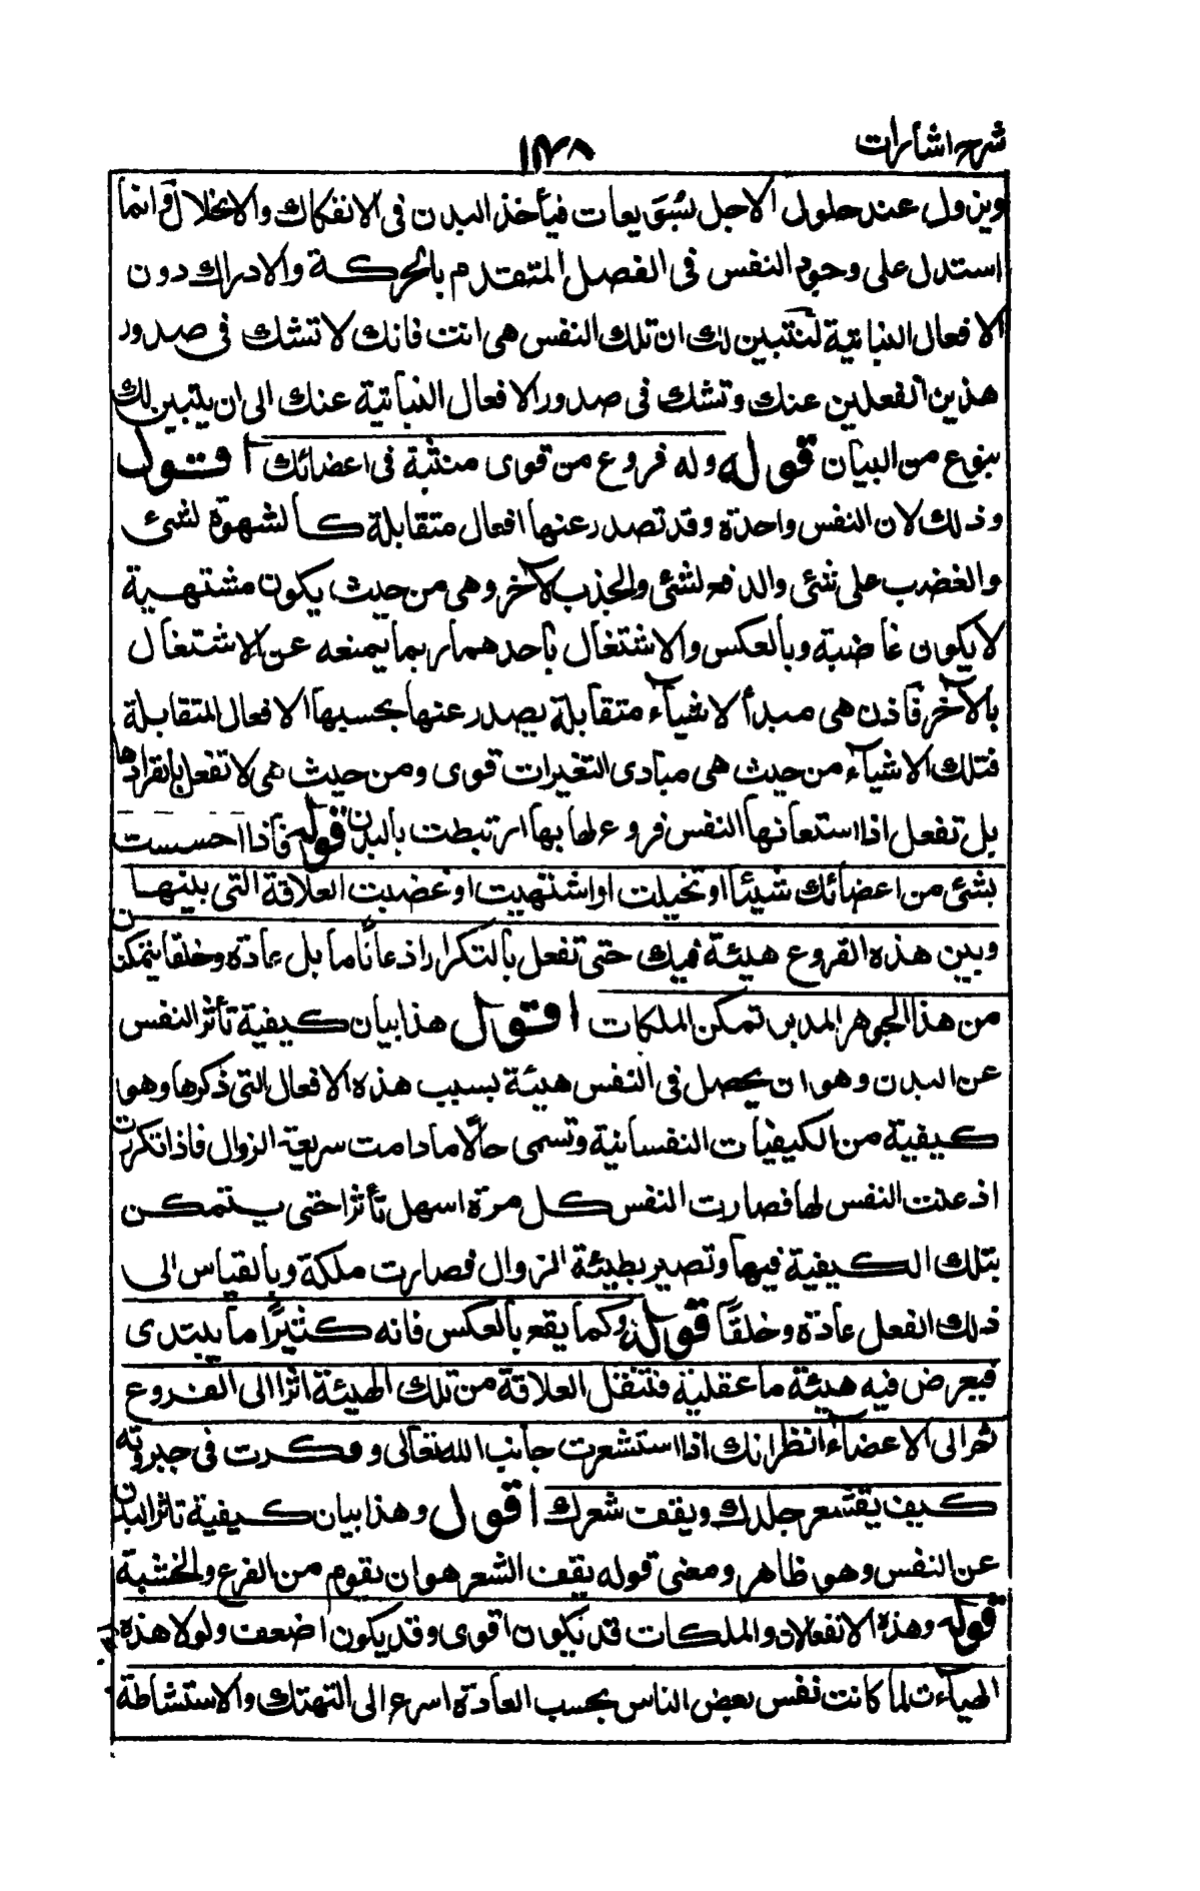 شرح اشارات
١٤٨
ويزول عند حلول الاجل فيأخذ البدن فى الانفكاك والانحلال وانما
استدل على وجود النفس فى الفصل المتقدم بالحركة والادراك دون
الافعال النباتية لتتبين لك ان تلك النفس هى انت فانك لا تشك فى صدور
هذين الفعلين عنك وتشك فى صدور الافعال النباتية عنك الى ان يتبين لك
بنوع من البيان قوله وله فروع من قوى منبثة فى اعضائك اقول
وذلك لان النفس واحدة وقد تصدر عنها افعال متقابلة كالشهوة لشئ
والغضب على شئ والدفع لشئ والجذب لآخر وهى من حيث يكون مشتهية
لا يكون غاضبة وبالعكس والاشتغال باحدهما ربما يمنعه عن الاشتغال
بالآخر فاذن هى مبدأ لاشياء متقابلة يصدر عنها بحسبها الافعال المتقابلة
فتلك الاشياء من حيث هى مبادى التغيرات قوى ومن حيث هى لا تفعل بانفرادها
بل تفعل اذا استعانها النفس فروع لها بها ارتبطت بالبدن قوله فاذا احسست
بشئ من اعضائك شيئا او تخيلت او اشتهيت او غضبت العلاقة التى بينها
وبين هذه الفروع هيئة فيك حتى تفعل بالتكرار اذعانا ما بل عادة وخلقا يتمكنان
من هذا الجوهر المدبر تمكن الملكات اقول هذا بيان كيفية تأثر النفس
عن البدن وهو ان يحصل فى النفس هيئة بسبب هذه الافعال التى ذكرها وهو
كيفية من الكيفيات النفسانية وتسمى حالا ما دامت سريعة الزوال فاذا تكررت
اذعنت النفس لها فصارت النفس كل مرة اسهل تأثرا حتى يتمكن
بتلك الكيفية فيها وتصير بطيئة الزوال فصارت ملكة وبالقياس الى
ذلك الفعل عادة وخلقا قوله وكما يقع بالعكس فانه كثيرا ما يبتدى
فيعرض فيه هيئة ما عقلية فتنقل العلاقة من تلك الهيئة اثرا الى الفروع
ثم الى الاعضاء انظر انك اذا استشعرت جانب الله تعالى وفكرت فى جبروته
كيف يقشعر جلدك ويقف شعرك اقول وهذا بيان كيفية تاثر البدن
عن النفس وهو ظاهر ومعنى قوله يقف الشعر هو ان يقوم من الفزع والخشية
قوله وهذه الانفعلات والملكات قد تكون اقوى وقد يكون اضعف ولولا هذه
الهيآت لما كانت نفس بعض الناس بحسب العادة اسرع الى التهتك والاستشاطة